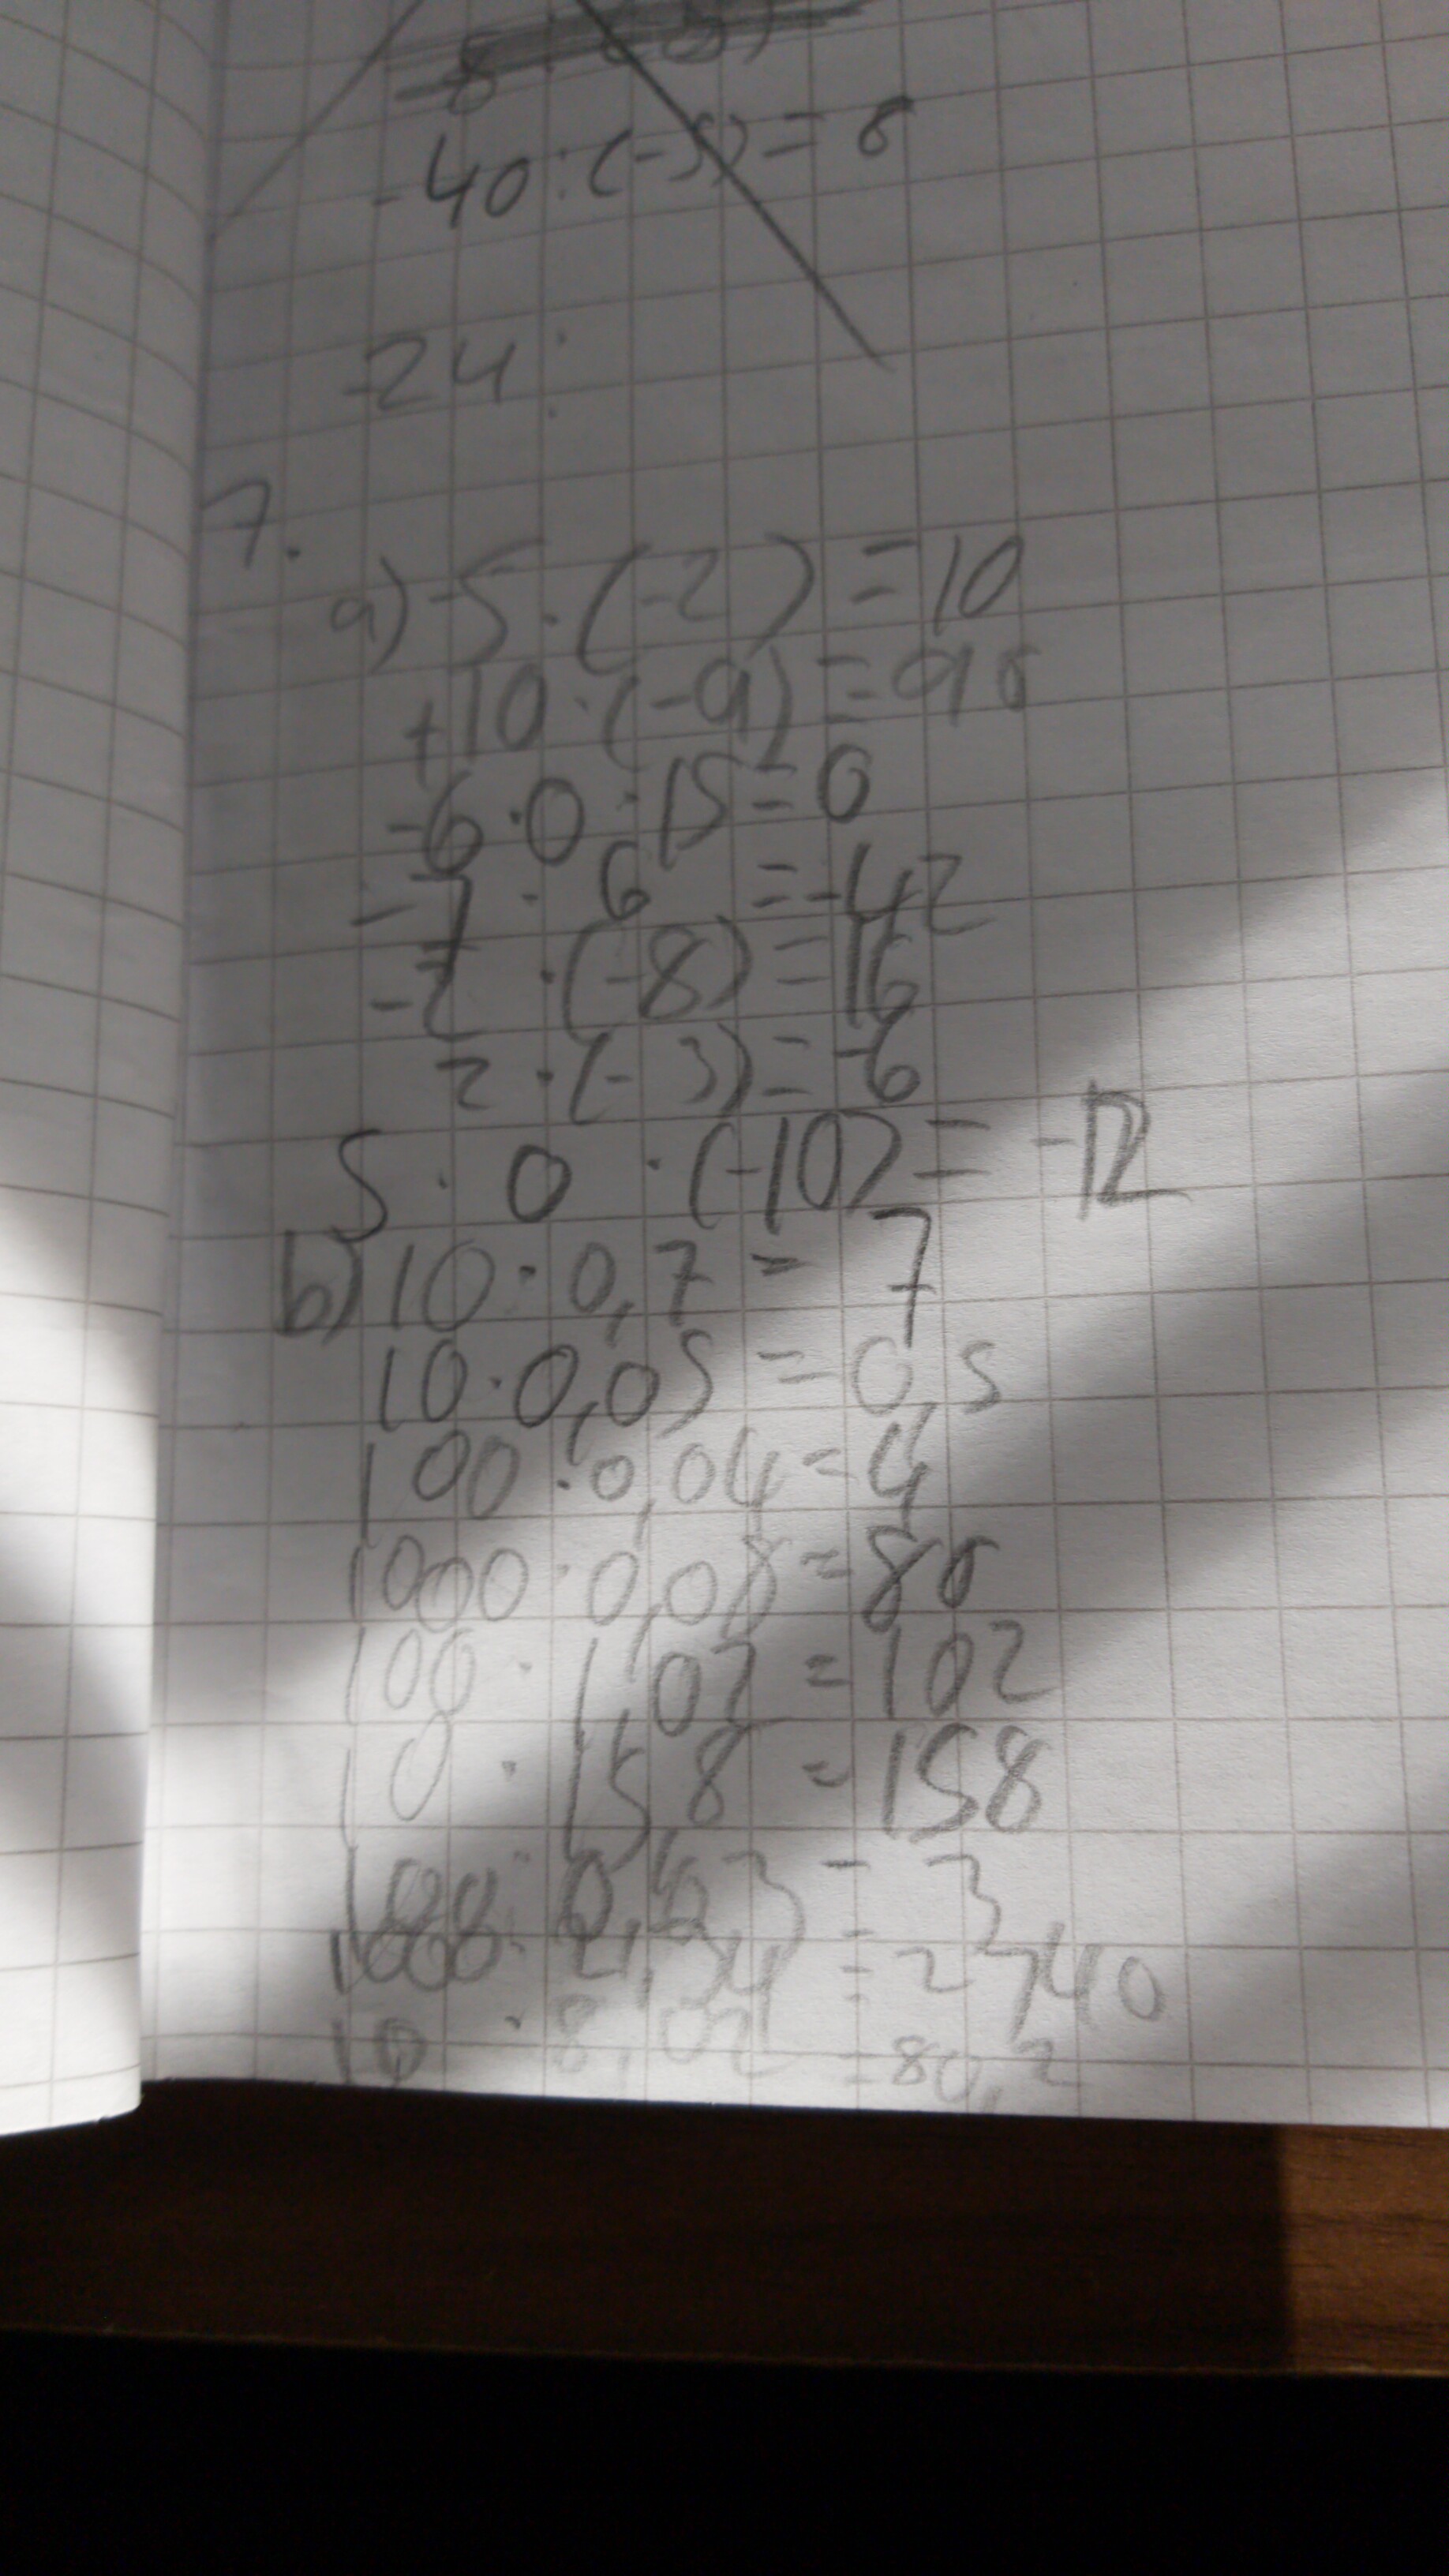 -8
-40:(-5)=8
-24:
7.
a) -5·(-2)=10
+10·(-9)=90
-6·0·15=0
-7·6=-42
-2·(-8)=16
2·(-3)=-6
5·0·(-10)=-12
b) 10·0,7=7
10·0,05=0,5
100·0,04=4
1000·0,08=80
100·1,02=102
10·15,8=158
=3
2,34=2340
10·8,02=80,2